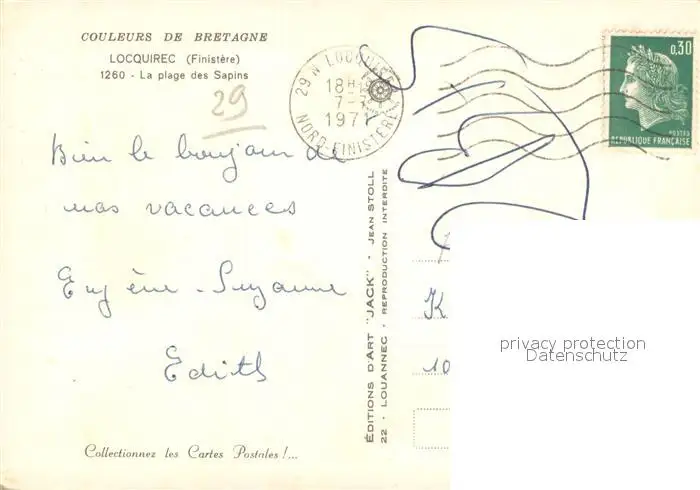 COULEURS DE BRETAGNE
LOCQUIREC (Finistère)
1260 - La plage des Sapins
29
Bien le bonjour de
nos vacances
Eugène - Suzanne
Edith
Collectionnez les Cartes Postales !...
ÉDITIONS D'ART "JACK" - JEAN STOLL
22 - LOUANNEC - REPRODUCTION INTERDITE
29 N LOCQUIREC
18 H
7-
1971
NORD-FINISTERE
0,30
POSTES
REPUBLIQUE FRANÇAISE
K
10
privacy protection
Datenschutz